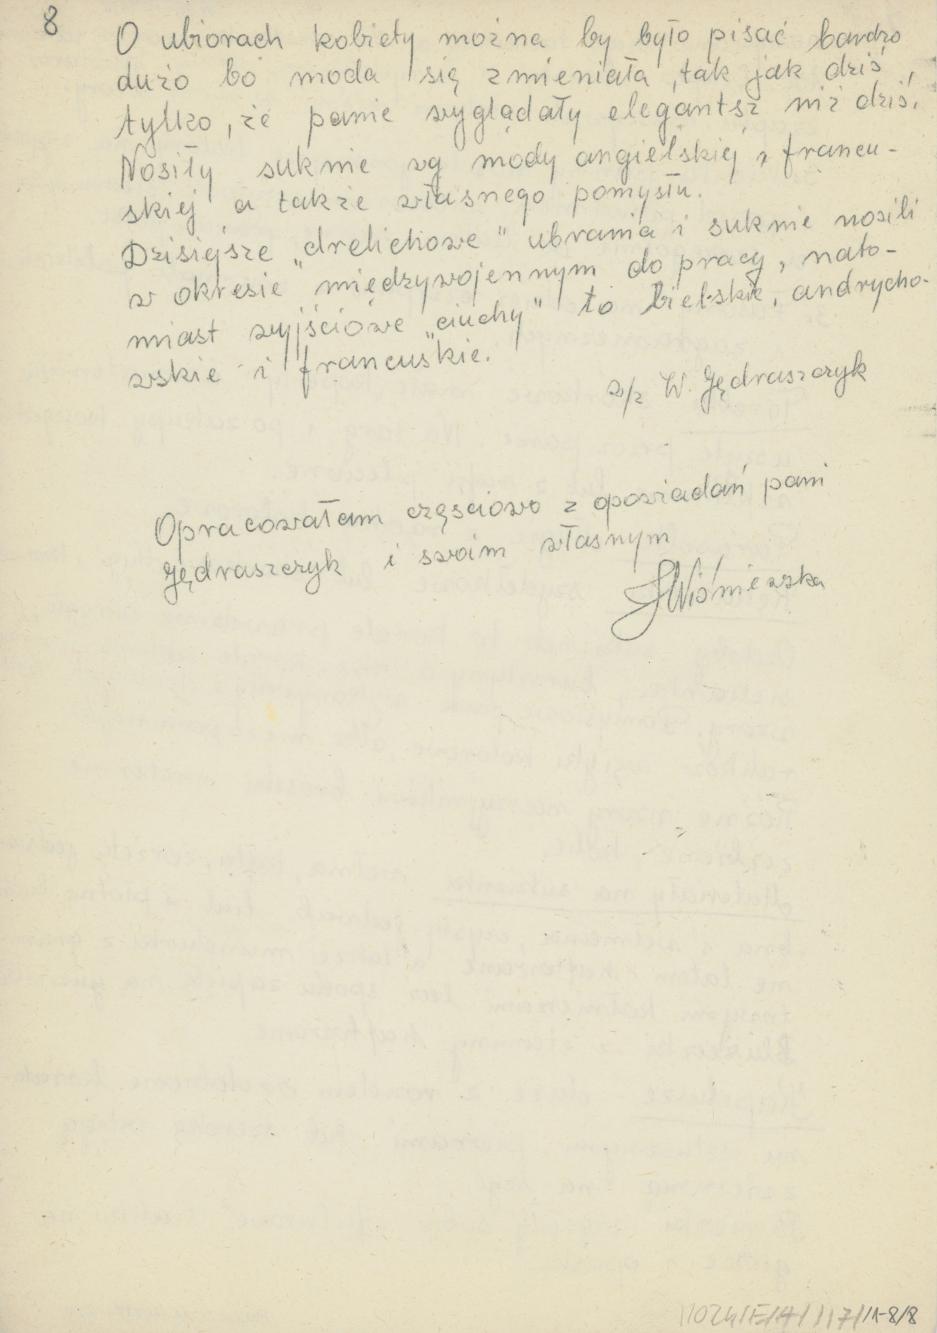 8
O ubiorach kobiety można by było pisać bardzo
dużo bo moda się zmieniała, tak jak dziś,
tylko, że panie wyglądały elegantsz niż dziś.
Nosiły suknie wg mody angielskiej i francu-
skiej a także własnego pomysłu.
Dzisiejsze "drelichowe" ubrania i suknie nosili
w okresie międzywojennym do pracy, nato-
miast wyjściowe "ciuchy" to bielskie, andrycho-
wskie i francuskie.
W. Jędraszczyk
Opracowałam częściowo z opowiadań pani
Jędraszczyk i swoim własnym
Wiśniewska